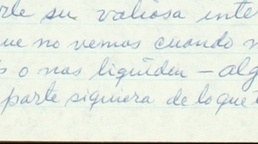 rle su valiosa inte
ue no vemos cuando n
s o nos liquiden — alg
parte siquiera de lo que